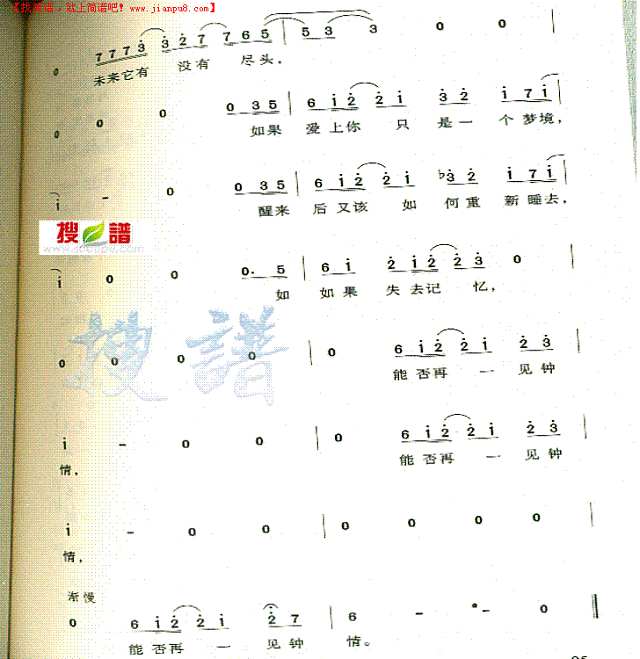 【找歌谱，就上简谱吧！www.jianpu8.com】
0 7 7 7 3 3 2 7 7 6 5 | 5 3 3 0 0
未来它有 没有 尽头.
0 0 0 0 3 5 | 6 1 2 2 1 3 2 1 7 1 |
如果 爱上你 只 是一 个梦境,
i - 0 0 3 5 | 6 1 2 2 1 ♭3 2 1 7 1 |
醒来 后又该 如 何重 新睡去,
搜谱
i 0 0 0. 5 | 6 i 2 1 2 2 3 0 |
如 如果 失去记 忆,
0 0 0 0 | 0 6 1 2 2 1 2 3 |
能否再 一 见钟
i - 0 0 | 0 6 1 2 2 1 2 3 |
情, 能否再 一 见钟
i - 0 0 | 0 0 0 0 |
情,
渐慢
0 6 1 2 2 1 2 7 | 6 - - 0 ‖
能否再 一 见钟 情。
搜谱